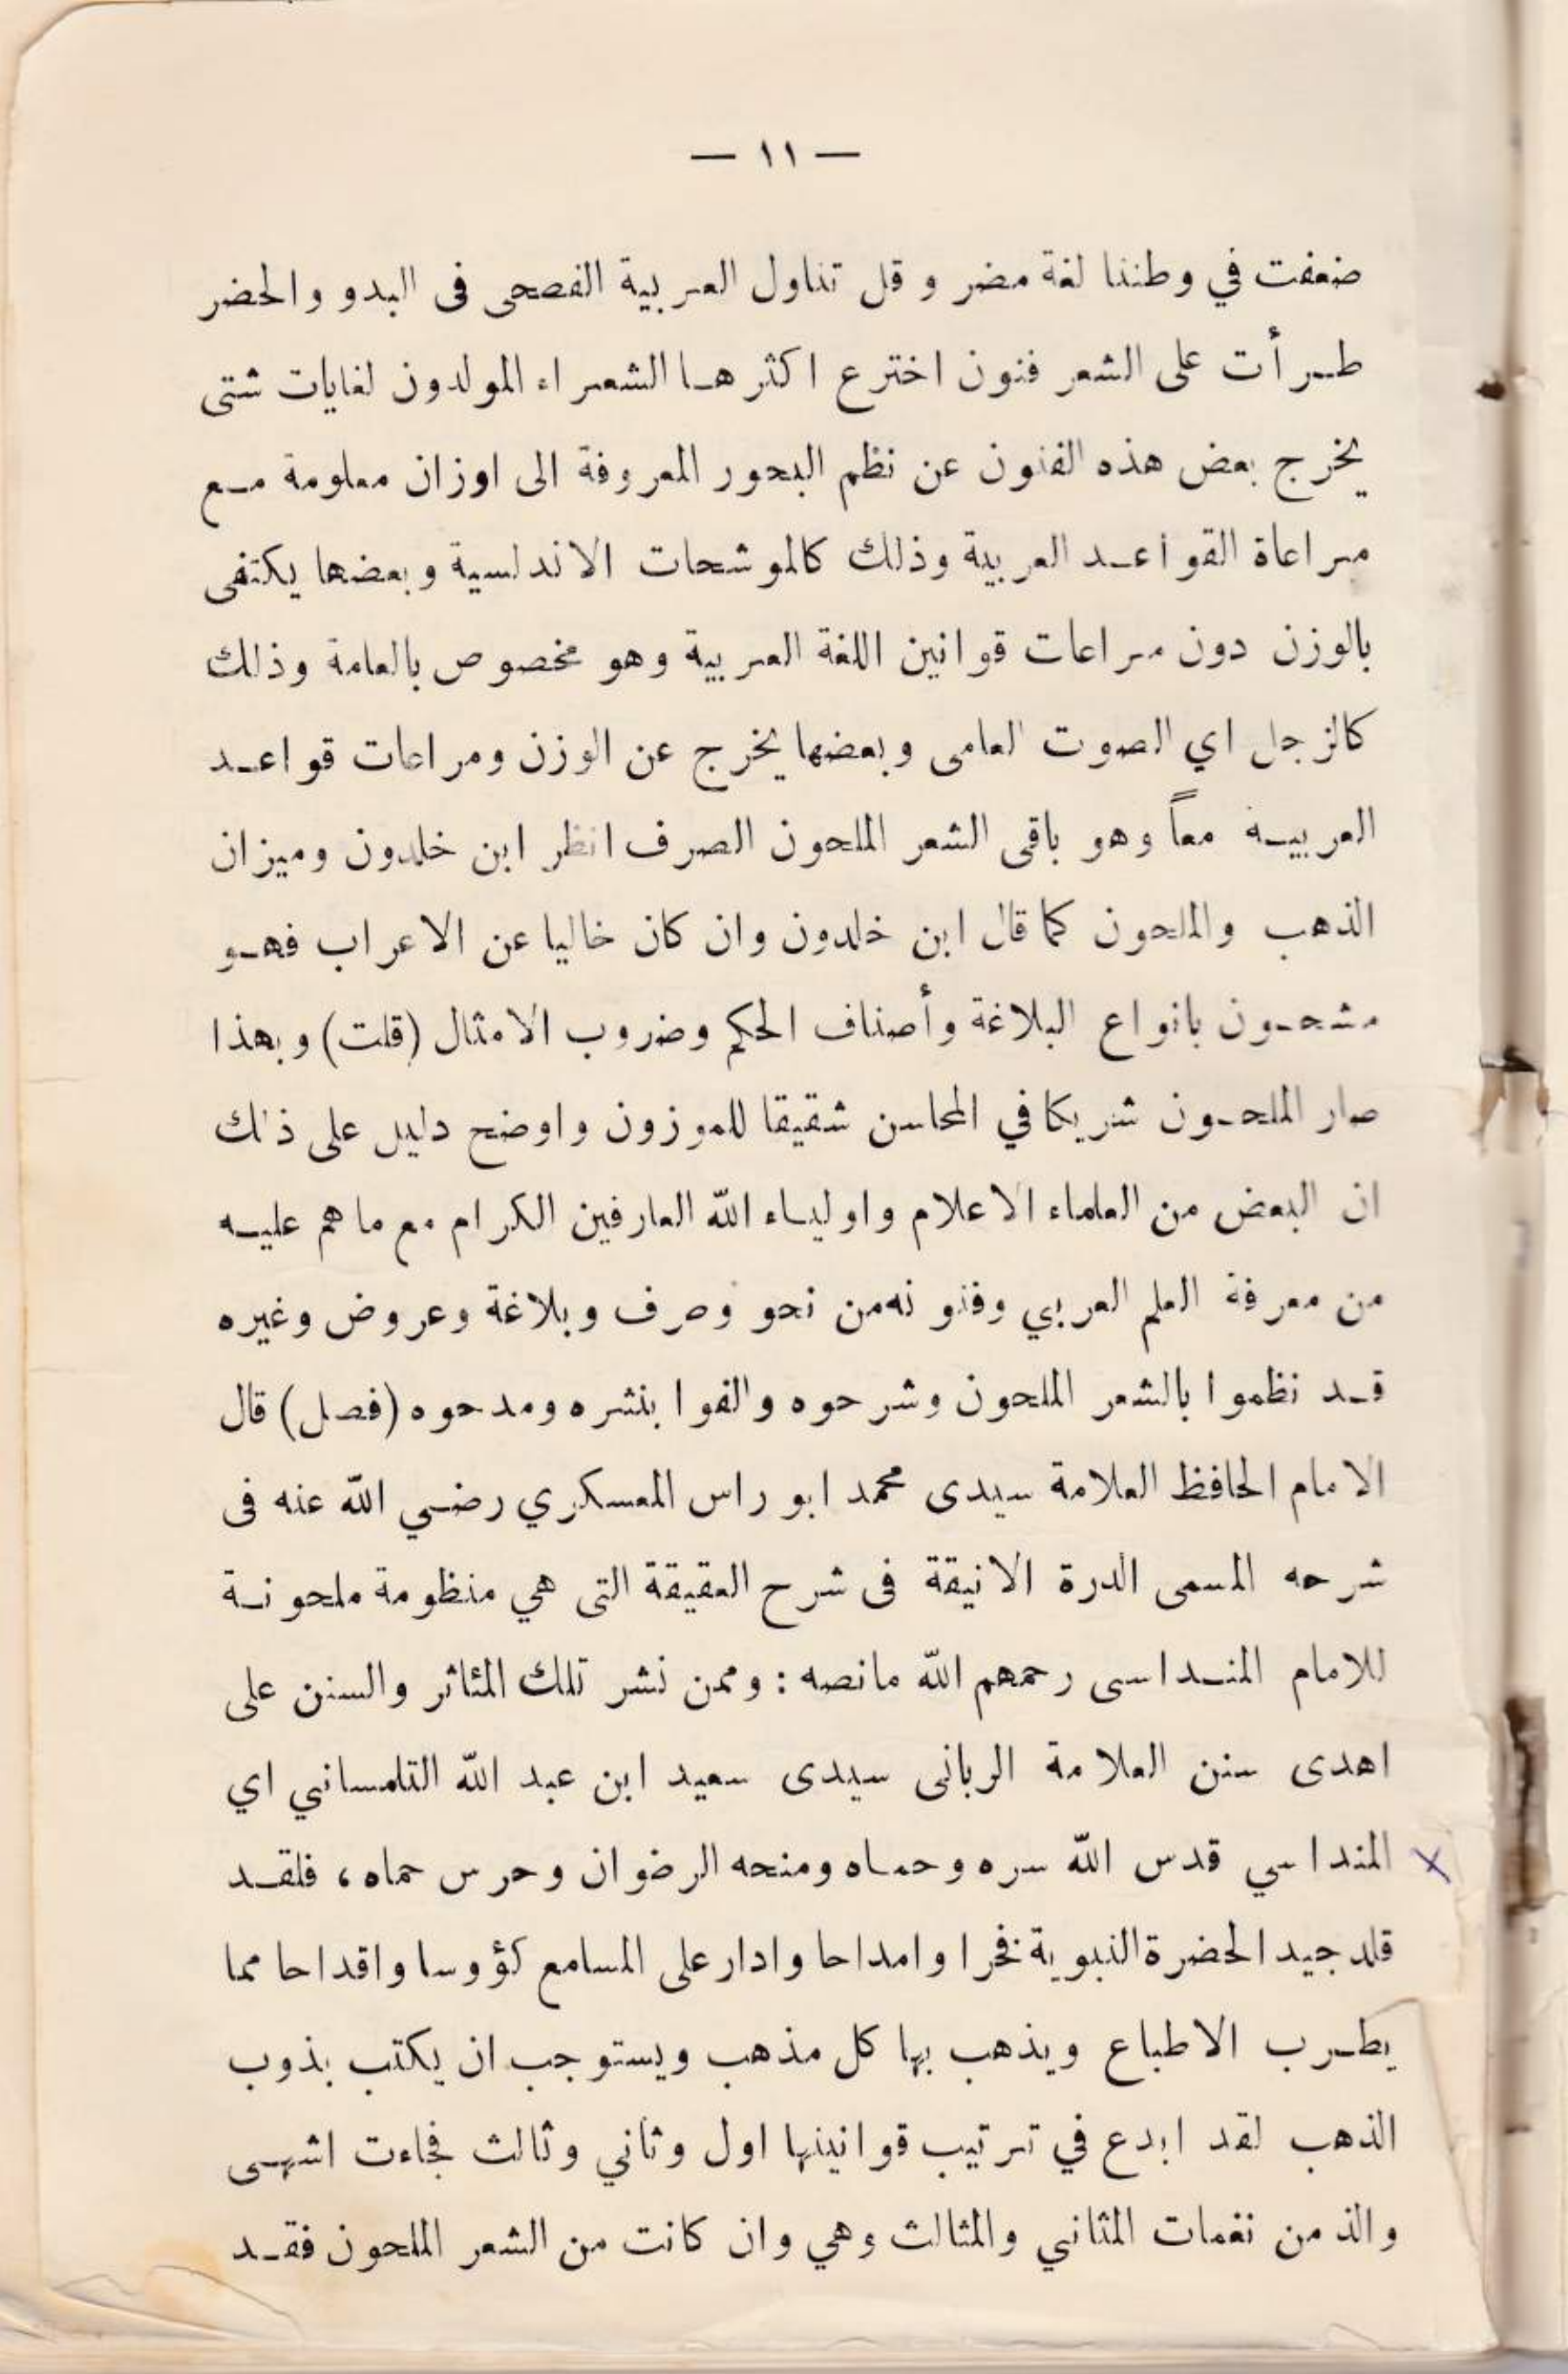 — ١١ —
ضعفت في وطننا لغة مضر وقل تناول العربية الفصحى فى البدو والحضر
طرأت على الشعر فنون اخترع اكثرها الشعراء المولدون لغايات شتى
يخرج بعض هذه الفنون عن نظم البحور المعروفة الى اوزان معلومة مع
مراعاة القواعد العربية وذلك كالموشحات الاندلسية وبعضها يكتفى
بالوزن دون مراعات قوانين اللغة العربية وهو مخصوص بالعامة وذلك
كالزجل اي الصوت العامى وبعضها يخرج عن الوزن ومراعات قواعد
العربية معاً وهو باقى الشعر الملحون الصرف انظر ابن خلدون وميزان
الذهب والملحون كما قال ابن خلدون وان كان خاليا عن الاعراب فهو
مشحون بانواع البلاغة وأصناف الحكم وضروب الامثال (قلت) وبهذا
صار الملحون شريكا في المحاسن شقيقا للموزون واوضح دليل على ذلك
ان البعض من العلماء الاعلام واولياء الله العارفين الكرام مع ما هم عليه
من معرفة العلم العربي وفنونه من نحو وصرف وبلاغة وعروض وغيره
قد نظموا بالشعر الملحون وشرحوه والفوا بنثره ومدحوه (فصل) قال
الامام الحافظ العلامة سيدى محمد ابو راس المعسكري رضي الله عنه فى
شرحه المسمى الدرة الانيقة فى شرح العقيقة التى هي منظومة ملحونة
للامام المنداسى رحمهم الله مانصه : وممن نشر تلك المئاثر والسنن على
اهدى سنن العلامة الربانى سيدى سعيد ابن عبد الله التلمساني اي
المنداسي قدس الله سره وحماه ومنحه الرضوان وحرس حماه، فلقد
قلد جيد الحضرة النبوية فخرا وامداحا وادار على المسامع كؤوسا واقداحا مما
يطرب الاطباع ويذهب بها كل مذهب ويستوجب ان يكتب بذوب
الذهب لقد ابدع في ترتيب قوانينها اول وثاني وثالث فجاءت اشهى
والذ من نغمات المثاني والمثالث وهي وان كانت من الشعر الملحون فقد